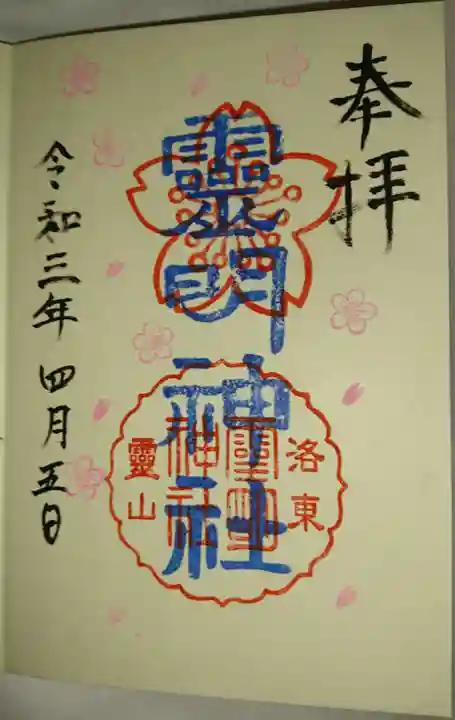 奉拝
靈明神社
洛東
靈明
神社
靈山
令和三年四月五日